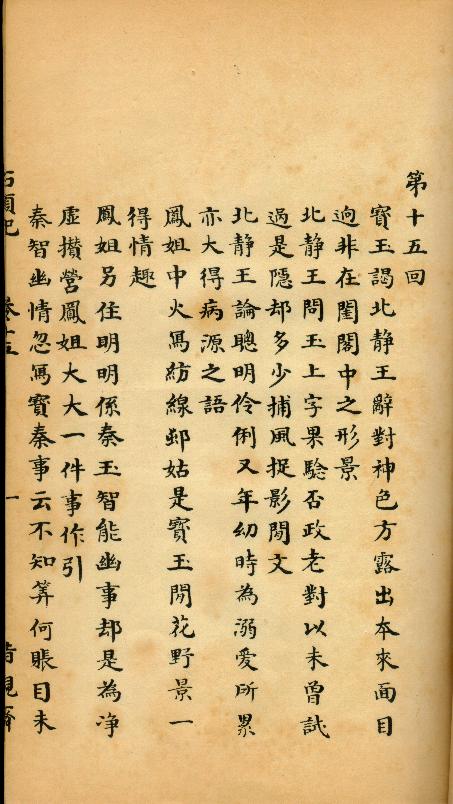 第十五回
寳玉謁北静王辭對神色方露出本來面目
逈非在閨閣中之形景
北静王問玉上字果驗否政老對以未曾試
過是隱却多少捕風捉影閒文
北静王論聰明伶俐又年幼時為溺愛所累
亦大得病源之語
鳳姐中火寫紡線郍姑是寳玉閒花野景一
得情趣
鳳姐另住明明係秦玉智能幽事却是為净
虛攢營鳳姐大大一件事作引
秦智幽情忽寫寳秦事云不知筭何賬目未
石頭記 卷十五 一